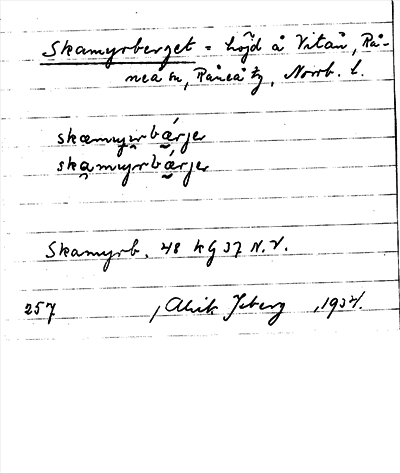 Skamyrberget = höjd å Vitån, Rå-
neå sn, Råneå tg, Norrb. l.
skamyrbærjer
skamyrbærjer
Skamyrb. 48 kg 37 N.V.
257 , Alrik Isberg , 1934.